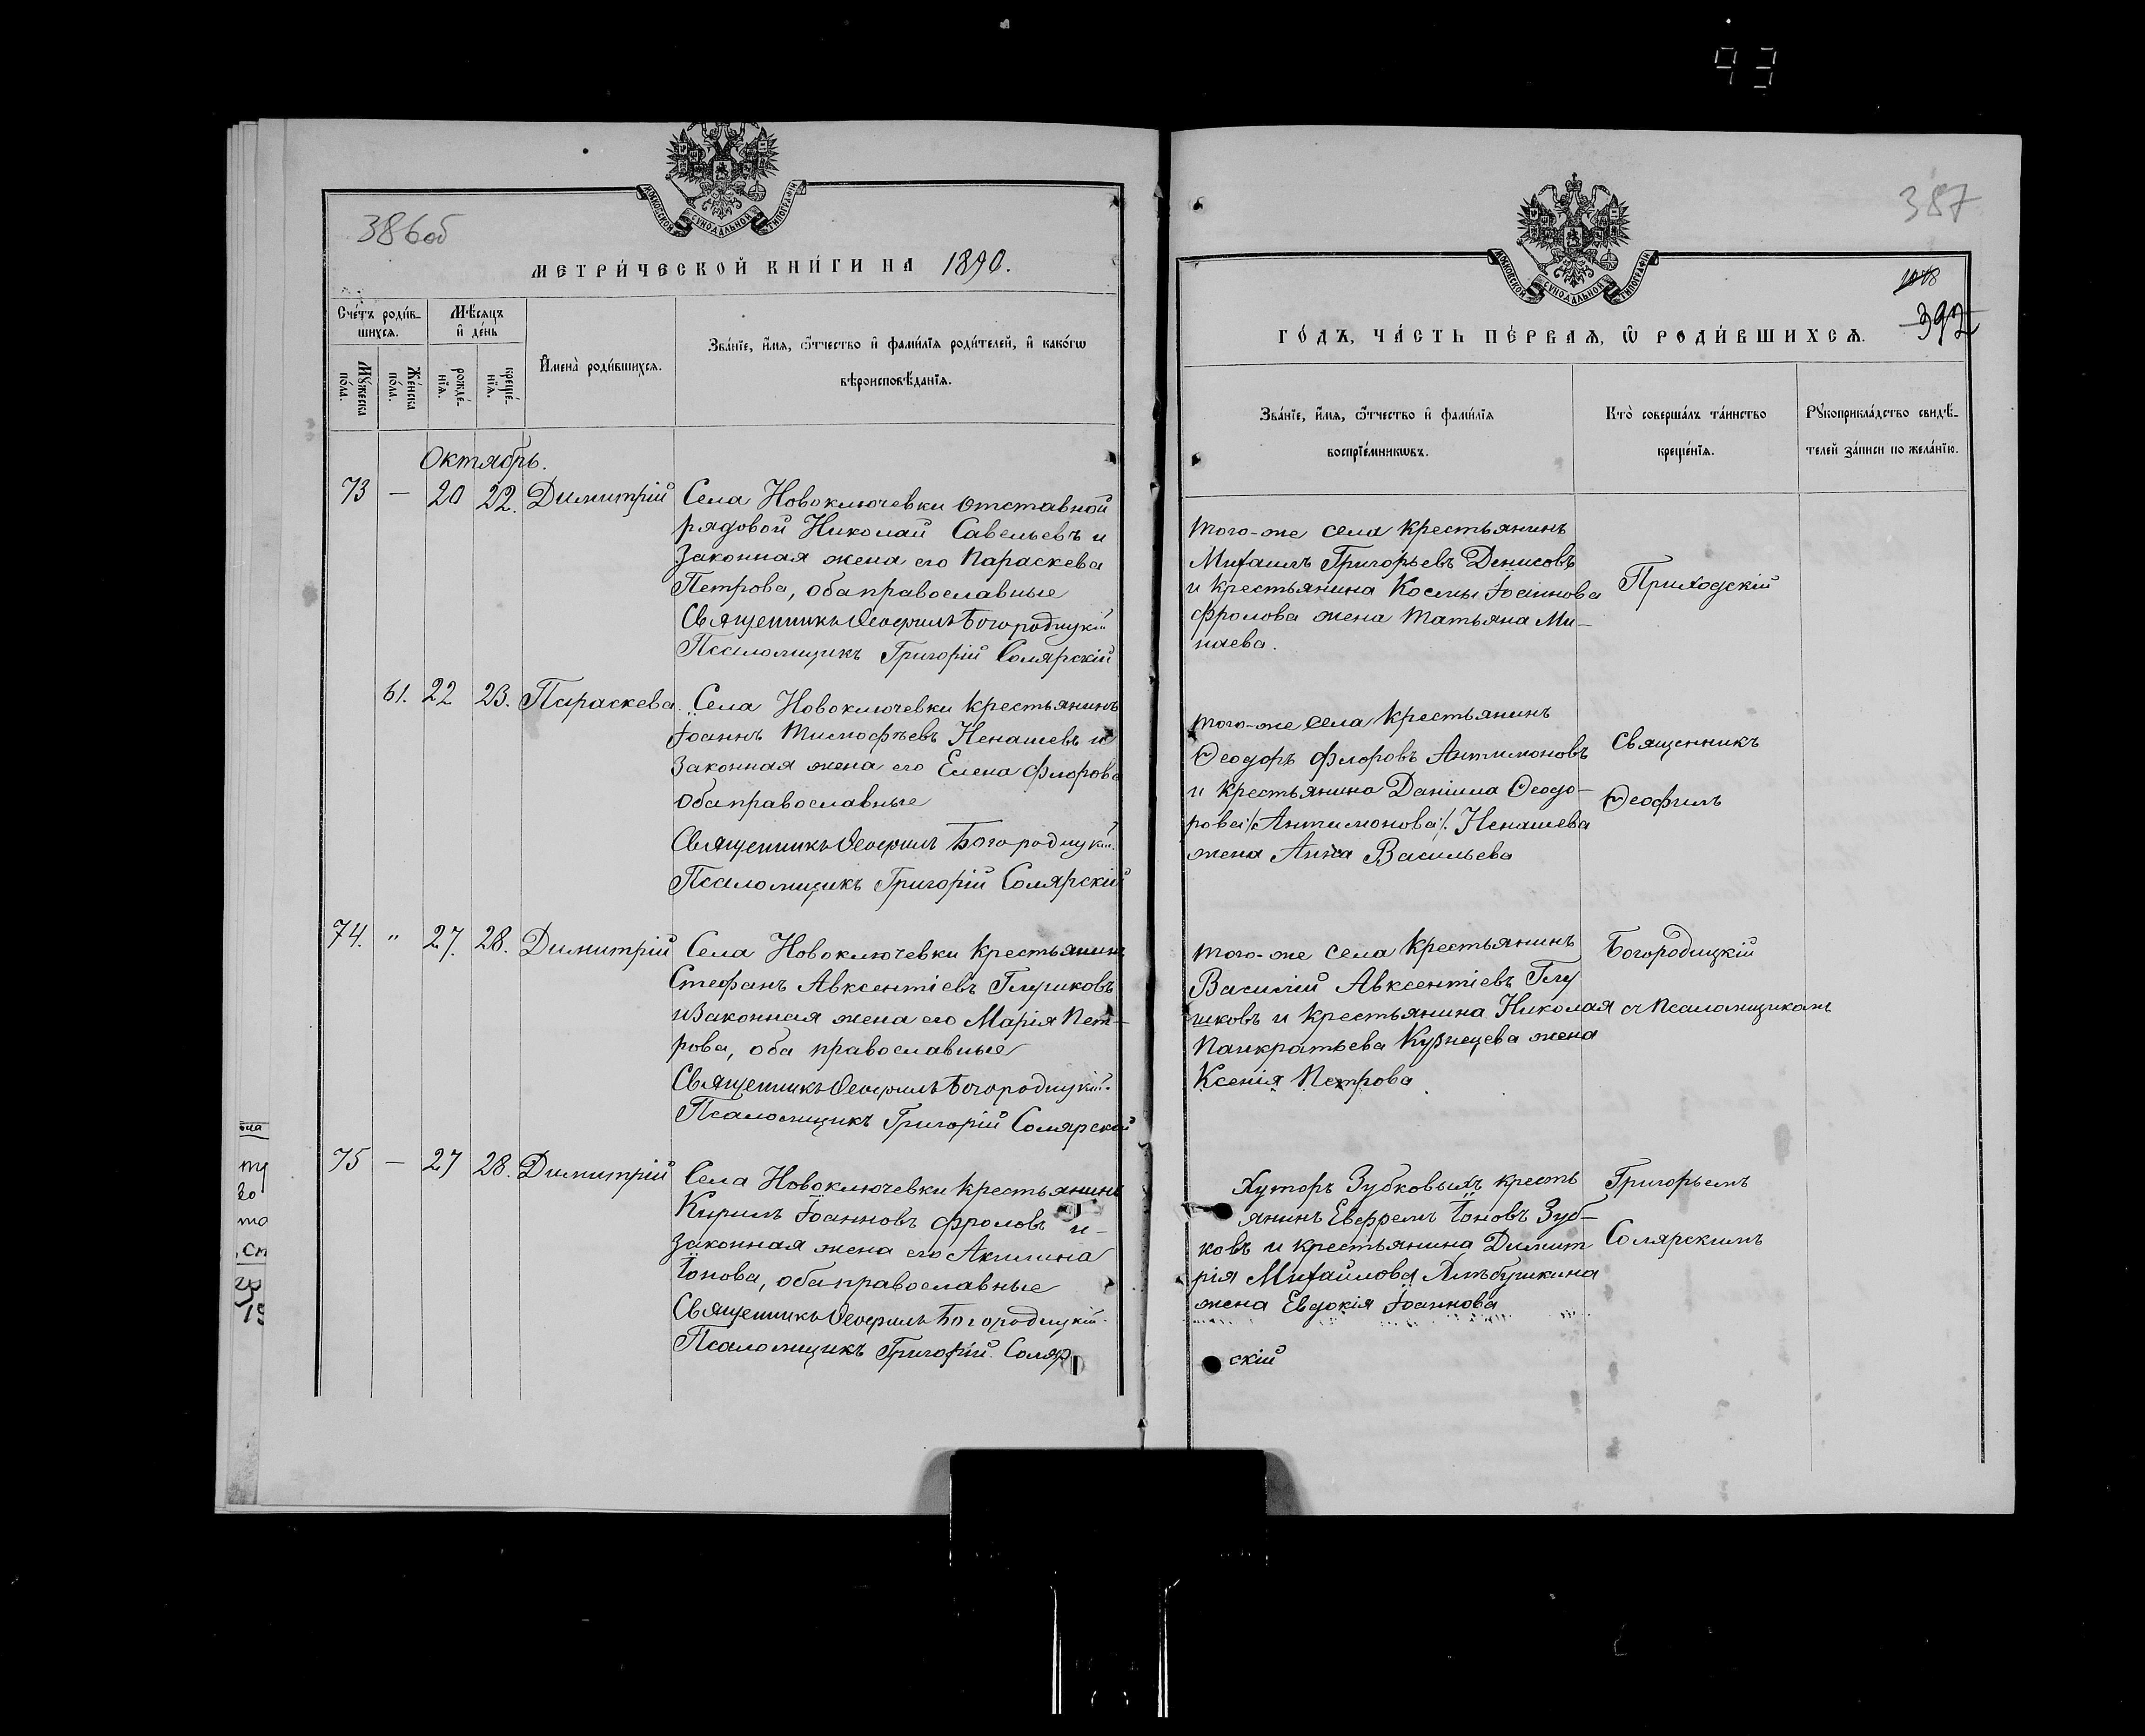 93
386об
МОСКОВСКОЙ СѴНОДАЛЬНОЙ ТИПОГРАФІИ
МЕТРИ́ЧЕСКОЙ КНИ́ГИ НА 1890.
Сче́тъ роди́в-
шихсѧ.
Мꙋ́жеска
по́ла.
Же́нска
по́ла.
Мѣ́сѧцъ
и҆ де́нь
рожде́-
нїѧ.
креще́-
нїѧ.
И҆мена̀ роди́вшихсѧ.
Зва́нїе, и҆́мѧ, ѻ҆́тчество и҆ фами́лїѧ роди́телей, и҆ како́гѡ
вѣроисповѣ́данїѧ.
Октябрь.
73 — 20 22. Димитрій
Села Новоключевки отставной
рядовой Николай Савельевъ и
законная жена его Параскева
Петрова, оба православные
Священникъ Ѳеофилъ Богородицкій
Псаломщикъ Григорій Солярскій
61. 22 23. Параскева.
Села Новоключевки крестьянинъ
Іоаннъ Тимофѣевъ Ненашевъ и
законная жена его Елена Флорова
оба православные
Священникъ Ѳеофилъ Богородицкій.
Псаломщикъ Григорій Солярскій
74. " 27. 28. Димитрій
Села Новоключевки крестьянинъ
Стефанъ Авксентіевъ Глушковъ
и законная жена его Марія Пет-
рова, оба православные
Священникъ Ѳеофилъ Богородицкій.
Псаломщикъ Григорій Солярской
75 — 27 28. Димитрій
Села Новоключевки крестьянинъ
Кирилъ Іоанновъ Фроловъ и-
законная жена его Акилина
Іонова, оба православные
Священникъ Ѳеофилъ Богородицкій.
Псаломщикъ Григорій. Соляр
387
МОСКОВСКОЙ СѴНОДАЛЬНОЙ ТИПОГРАФІИ
392
ГО́ДЪ, ЧА́СТЬ ПЕ́РВАѦ, Ѡ҆ РОДИ́ВШИХСѦ.
Зва́нїе, и҆́мѧ, ѻ҆́тчество и҆ фами́лїѧ
воспрїе́мникѡвъ.
Кто̀ соверша́лъ та́инство
креще́нїѧ.
Рꙋкоприкла́дство свидѣ́-
телей за́писи по жела́нїю.
того-же села крестьянинъ
Михаилъ Григорьевъ Денисовъ
и крестьянина Космы Іоаннова
Фролова жена Татьяна Ми-
наева.
Приходскій
того-же села крестьянинъ
Ѳеодоръ Флоровъ Антимоновъ
и крестьянина Даніила Ѳеодо-
рова /Антимонова/. Ненашева
жена Анна Васильева
Священникъ
Ѳеофилъ
того-же села крестьянинъ
Василій Авксентіевъ Глу
шковъ и крестьянина Николая
Панкратьева Кузнецева жена
Ксенія Петрова
Богородицкій
съ псаломщикомъ
Хуторъ Зубковыхъ кресть
янинъ Евфремъ Іоновъ Зуб-
ковъ и крестьянина Димит
рія Михайлова
жена Евдокія Іоаннова
Григорьемъ
Солярскимъ
скій